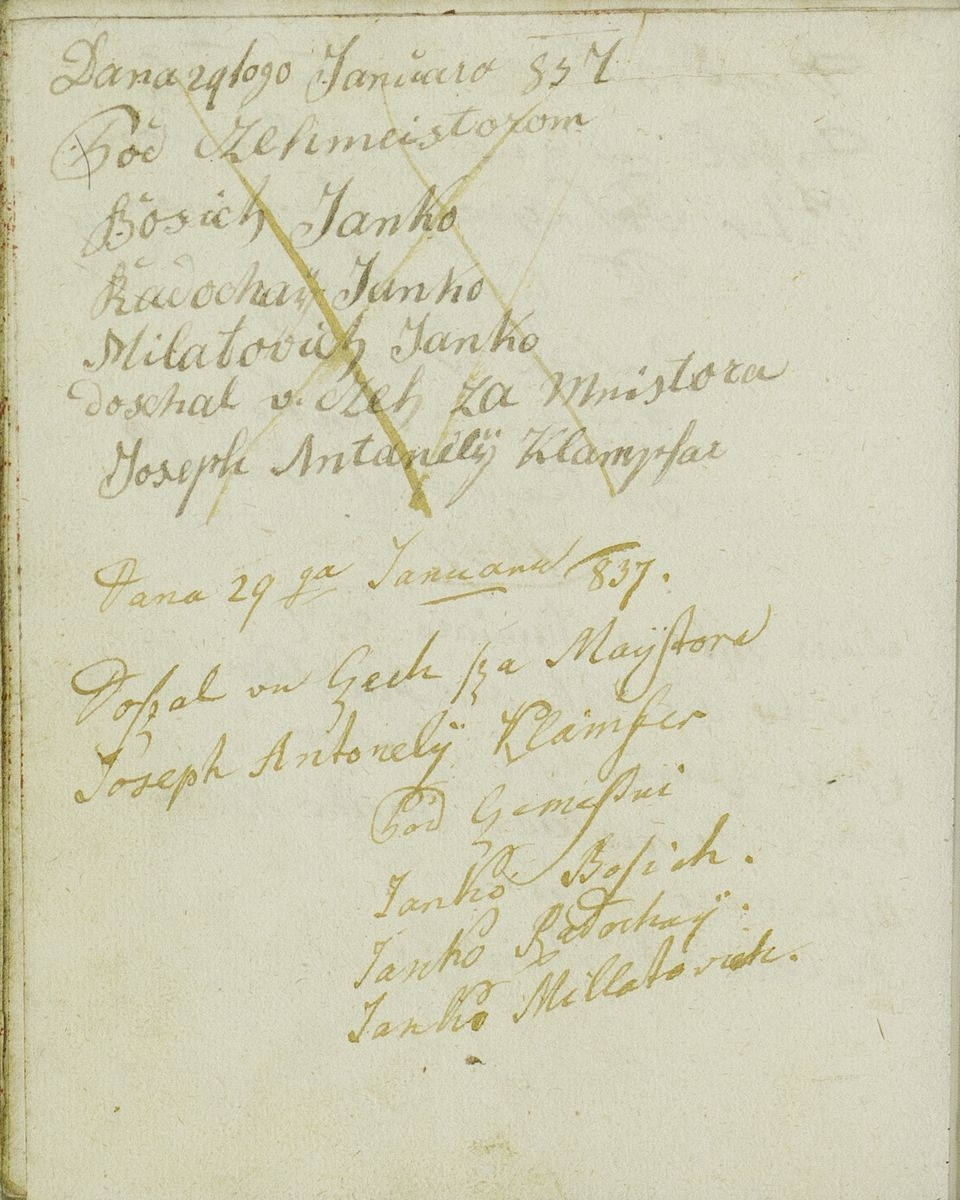 Dana 29togo Januara 837
Pod Zehmeistorom
Bosich Janko
Radochaÿ Janko
Milatovich Janko
doschal v. Zeh za Mnistora
Joseph Antanelÿ Klampfar
Dana 29ga Januara 837.
Doszal vu Czech sza Mayſtora
Joseph Antonelÿ Klämfer
Pod Czemeßni
Janko Boſich.
Janko Radochaÿ.
Janko Millatovich.